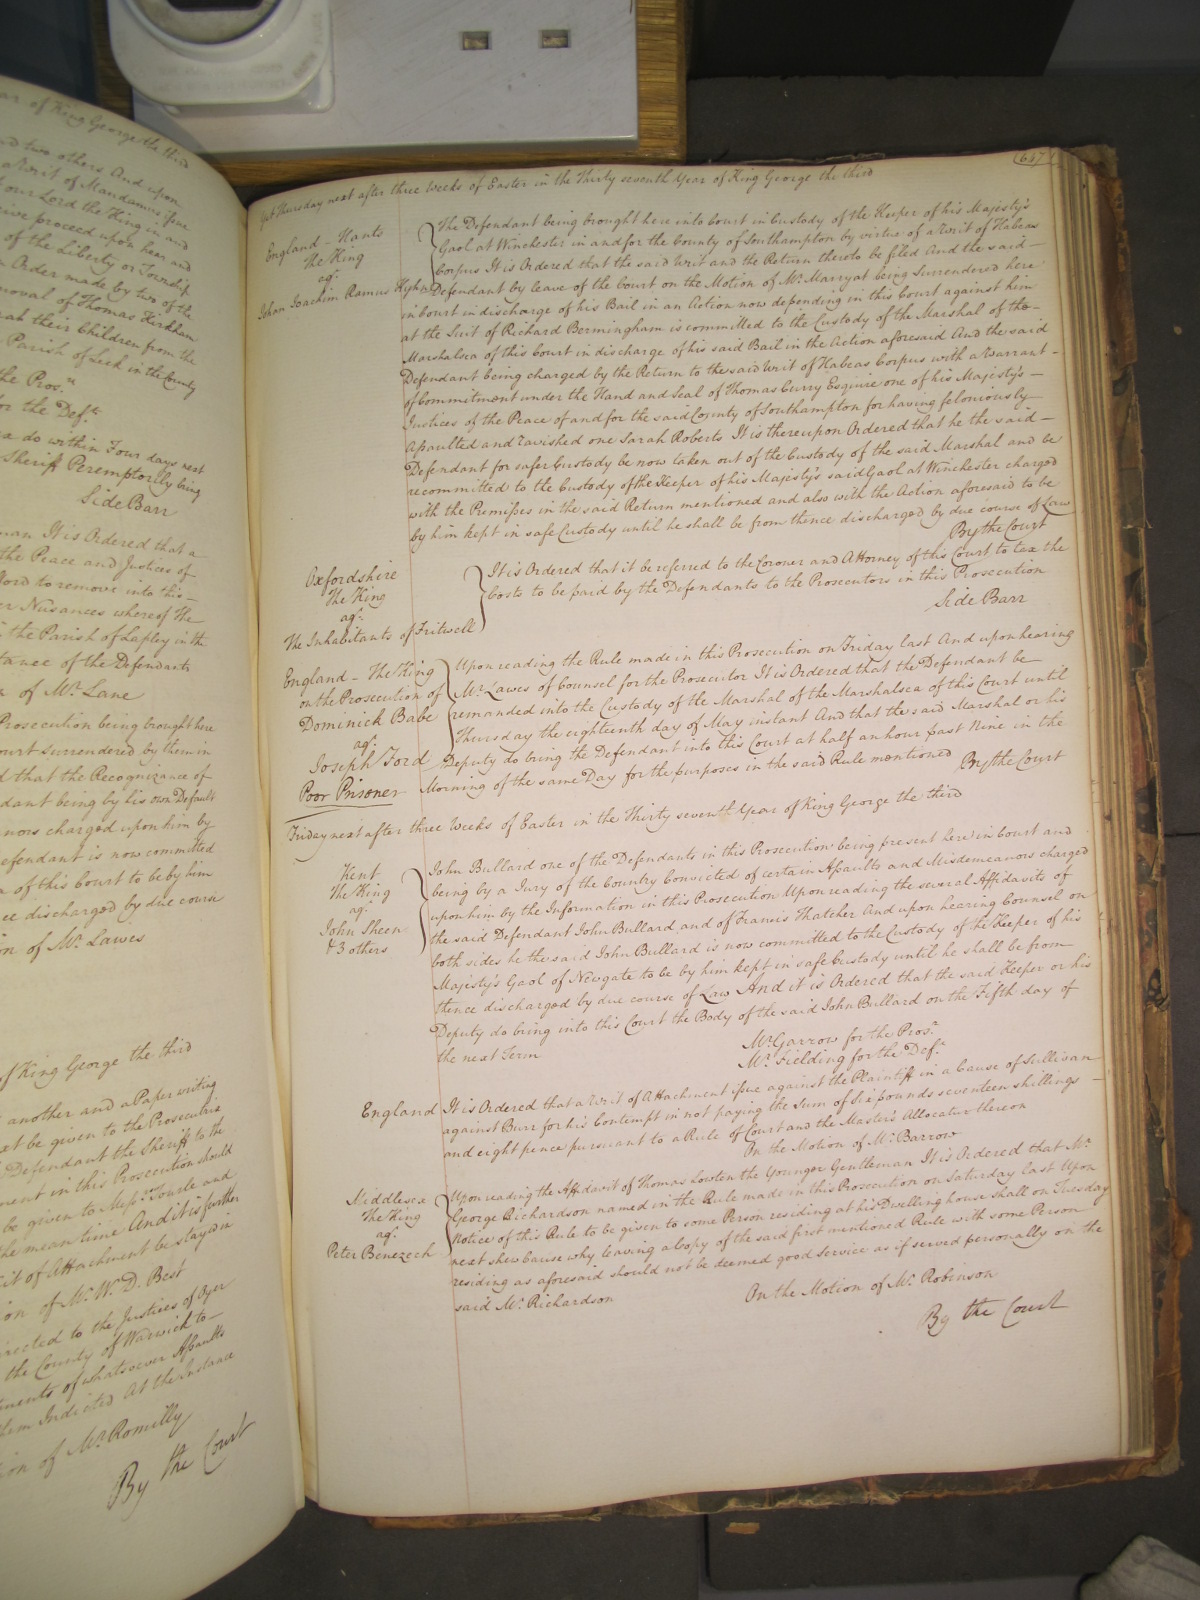 ar of King George the third
nd two others And upon
a Writ of Mandamus issue
our Lord the King in and
eive proceed upon hear and
of the Liberty or Township
n Order made by two of the
moval of Thomas Kirkham
rah their Children from the
Parish of Leek in the County
the Pros.r
for the Def.t
do within Four days next
Sheriff Peremptorily being
Side Barr
man It is Ordered that a
the Peace and Justices of
Lord to remove into this
er Nusances whereof The
the Parish of Lapley in the
tance of the Defendants
of Mr. Lane
Prosecution being brought here
ourt Surrendered by them in
d that the Recognizance of
dant being by his own Default
nors charged upon him by
efendant is now committed
of this Court to be by him
ee discharged by due course
on of Mr. Lawes
of King George the third
another and a Paper writing
at be given to the Prosecutrix
Defendant the Sheriff to the
ment in this Prosecution should
be given to Mess.rs Towle and
he mean time And it is further
rit of Attachment be stayed in
ion of Mr. W. D. Best
irected to the Justices of Oyer
the County of Warwick to
ments of whatsoever Assaults
them Indicted At the Instance
ion of Mr. Romilly
By the Court
647
Yet Thursday next after three Weeks of Easter in the Thirty seventh Year of King George the third
England - Hants
The King
ag.t
Johan Joachim Ramus Hyhn
The Defendant being brought here into Court in Custody of the Keeper of his Majesty's
Gaol at Winchester in and for the County of Southampton by virtue of a Writ of Habeas
Corpus It is Ordered that the said Writ and the Return thereto be filed And the said
Defendant by leave of the Court on the Motion of Mr. Marryat being Surrendered here
in Court in discharge of his Bail in an Action now depending in this Court against him
at the Suit of Richard Bermingham is committed to the Custody of the Marshal of the
Marshalsea of this Court in discharge of his said Bail in the Action aforesaid And the said
Defendant being charged by the Return to the said Writ of Habeas Corpus with a Warrant
of Commitment under the Hand and Seal of Thomas Curry Esquire one of his Majesty's
Justices of the Peace of and for the said County of Southampton for having feloniously
Assaulted and ravished one Sarah Roberts It is thereupon Ordered that he the said
Defendant for safer Custody be now taken out of the Custody of the said Marshal and be
recommitted to the Custody of the Keeper of his Majesty's said Gaol at Winchester charged
with the Premisses in the said Return mentioned and also with the Action aforesaid to be
by him kept in safe Custody until he shall be from thence discharged by due course of Law
By the Court
Oxfordshire
The King
ag.t
The Inhabitants of Fritwell
It is Ordered that it be referred to the Coroner and Attorney of this Court to tax the
Costs to be paid by the Defendants to the Prosecutors in this Prosecution
Side Barr
England - The King
on the Prosecution of
Dominick Babe
ag.t
Joseph Ford
Poor Prisoner
Upon reading the Rule made in this Prosecution on Friday last And upon hearing
Mr. Lawes of Counsel for the Prosecutor It is Ordered that the Defendant be
remanded into the Custody of the Marshal of the Marshalsea of this Court until
Thursday the eighteenth day of May instant And that the said Marshal or his
Deputy do bring the Defendant into this Court at half an hour past Nine in the
Morning of the same Day for the purposes in the said Rule mentioned By the Court
Friday next after three Weeks of Easter in the Thirty seventh Year of King George the third
Kent
The King
ag.t
John Sheen
& 3 others
John Bullard one of the Defendants in this Prosecution being present here in Court and
being by a Jury of the Country Convicted of certain Assaults and Misdemeanors charged
upon him by the Information in this Prosecution Upon reading the several Affidavits of
the said Defendant John Bullard and of Francis Thatcher And upon hearing Counsel on
both sides he the said John Bullard is now committed to the Custody of the Keeper of his
Majesty's Gaol of Newgate to be by him kept in safe Custody until he shall be from
thence discharged by due course of Law And it is Ordered that the said Keeper or his
Deputy do bring into this Court the Body of the said John Bullard on the Fifth day of
the next Term
Mr. Garrow for the Pros.r
Mr. Fielding for the Def.t
England It is Ordered that a Writ of Attachment issue against the Plaintiff in a Cause of Sullivan
against Burr for his Contempt in not paying the Sum of six pounds seventeen shillings
and eight pence pursuant to a Rule of Court and the Master's Allocatur thereon
On the Motion of Mr. Barrow
Middlesex
The King
ag.t
Peter Benezech
Upon reading the Affidavit of Thomas Lowten the Younger Gentleman It is Ordered that Mr.
George Richardson named in the Rule made in this Prosecution on Saturday last Upon
Notice of this Rule to be given to some Person residing at his Dwelling house shall on Tuesday
next shew Cause why leaving a Copy of the said first mentioned Rule with some Person
residing as aforesaid should not be deemed good Service as if served personally on the
said Mr. Richardson
On the Motion of Mr. Robinson
By the Court